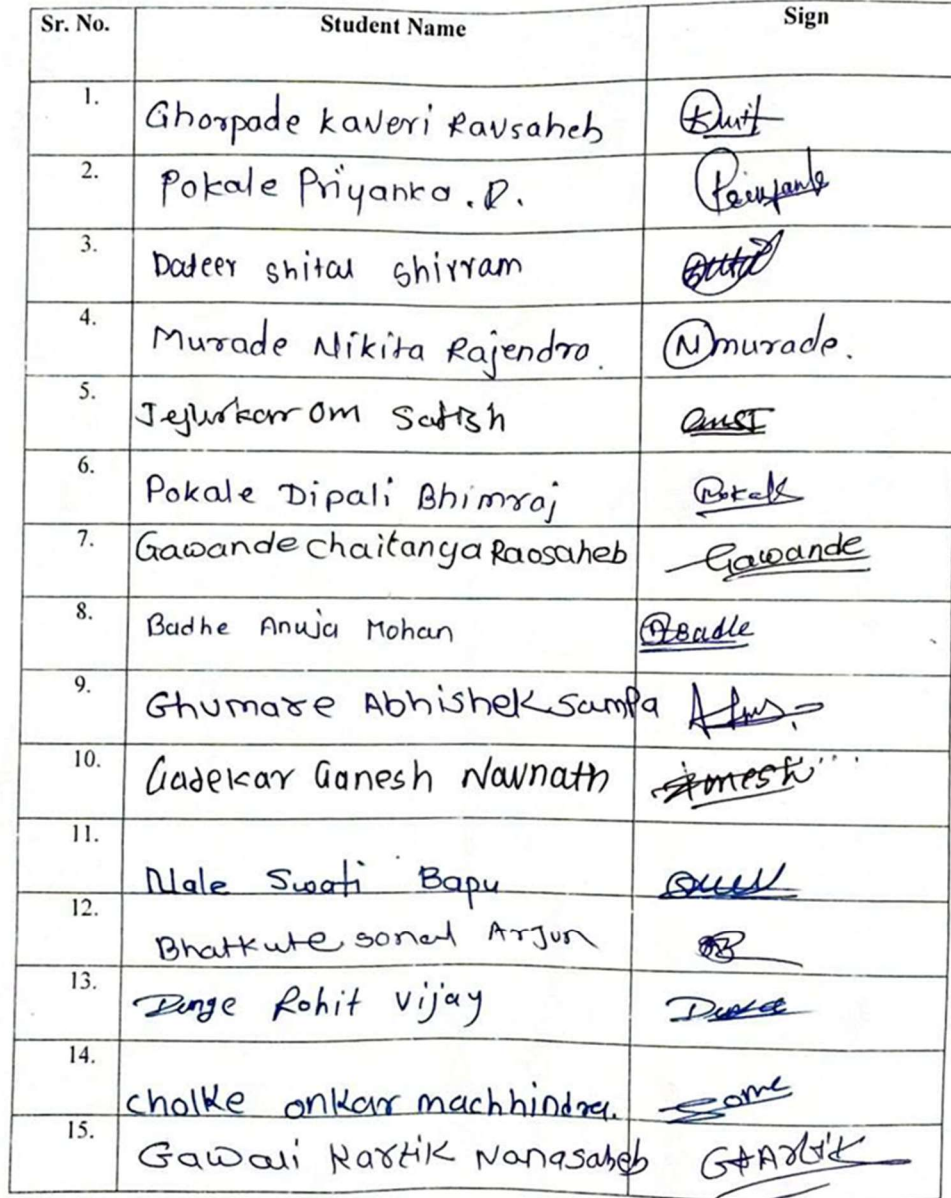 Sr. No. Student Name Sign
1. Ghorpade kaveri Ravsaheb
2. Pokale Priyanka . D. Priyanka
3. Dateer shital shirram
4. Murade Nikita Rajendra. (N)murade.
5. Jejurkar Om Satish OmSJ
6. Pokale Dipali Bhimraj Pokale
7. Gawande chaitanya Raosaheb Gawande
8. Badhe Anuja Mohan ABadhe
9. Ghumare Abhishek Sampa
10. Gadekar Ganesh Navnath
11. Nale Swati Bapu
12. Bhatkute sonal Arjun
13. Dange Rohit Vijay
14. cholke onkar machhindra.
15. Gawali Kartik Nanasaheb